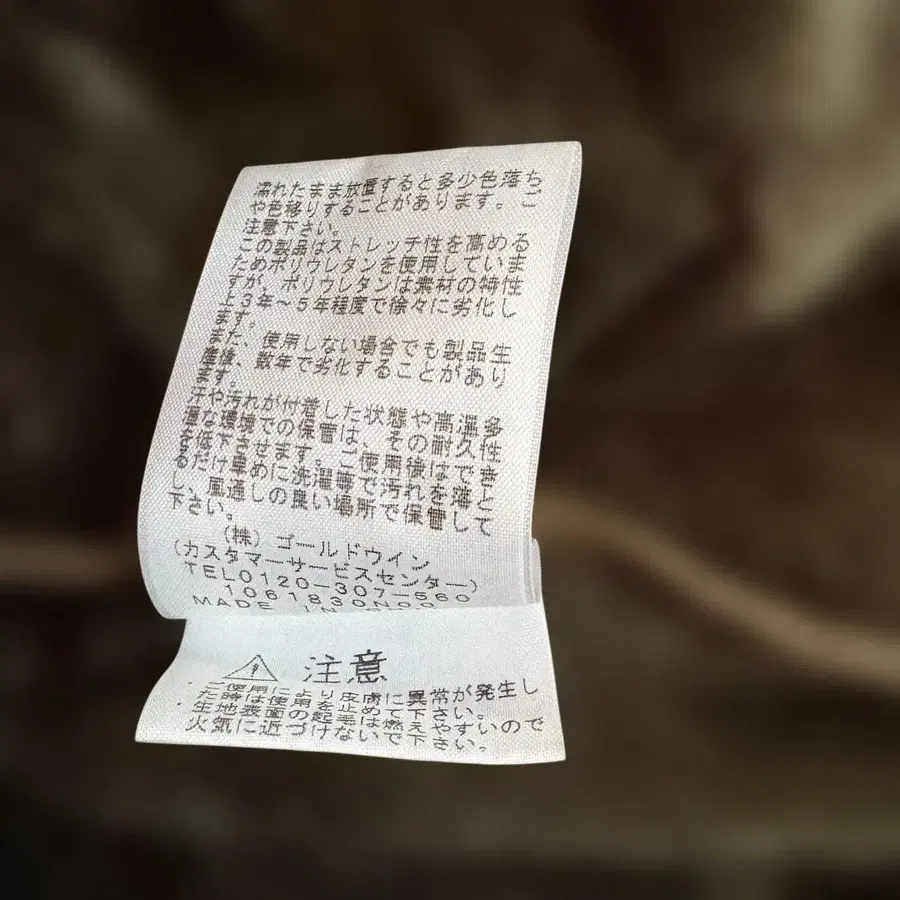 濡れたまま放置すると多少色落ち
や色移りすることがあります。ご
注意下さい。
この製品はストレッチ性を高める
ためポリウレタンを使用していま
すが、ポリウレタンは素材の特性
上3年～5年程度で徐々に劣化し
ます。
また、使用しない場合でも製品生
産後、数年で劣化することがあり
ます。
汗や汚れが付着した状態や高温多
湿な環境での保管は、その耐久性
を低下させます。ご使用後はでき
るだけ早めに洗濯等で汚れを落と
し、風通しの良い場所で保管して
下さい。
(株) ゴールドウイン
(カスタマーサービスセンター)
TEL0120-307-560
MADE IN
注意
・ご使用により皮膚に異常が発生し
た時は使用を止めて下さい。
・生地表面の起毛は燃えやすいので
火気に近づけないで下さい。